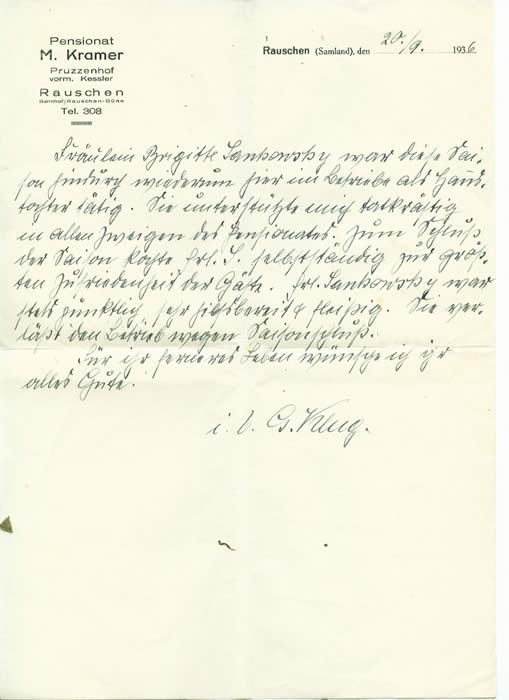 Pensionat
M. Kramer
Pruzzenhof
vorm. Kessler
Rauschen
Bahnhof: Rauschen-Düne
Tel. 308
Rauschen (Samland), den 20./9. 1936
Fräulein Brigitte Sankowsky war diese Sai-
son hindurch wiederum hier im Betriebe als Haus-
tochter tätig. Sie unterstützte mich tatkräftig
in allen Zweigen des Pensionates. Zum Schluß
der Saison kochte Frl. S. selbstständig zur größ-
ten Zufriedenheit der Gäste. Frl. Sankowsky war
stets pünktlich sehr hilfsbereit & fleißig. Sie ver-
läßt den Betrieb wegen Saisonschluß.
Für ihr ferneres Leben wünsche ich ihr
alles Gute.
i. V. Klug.